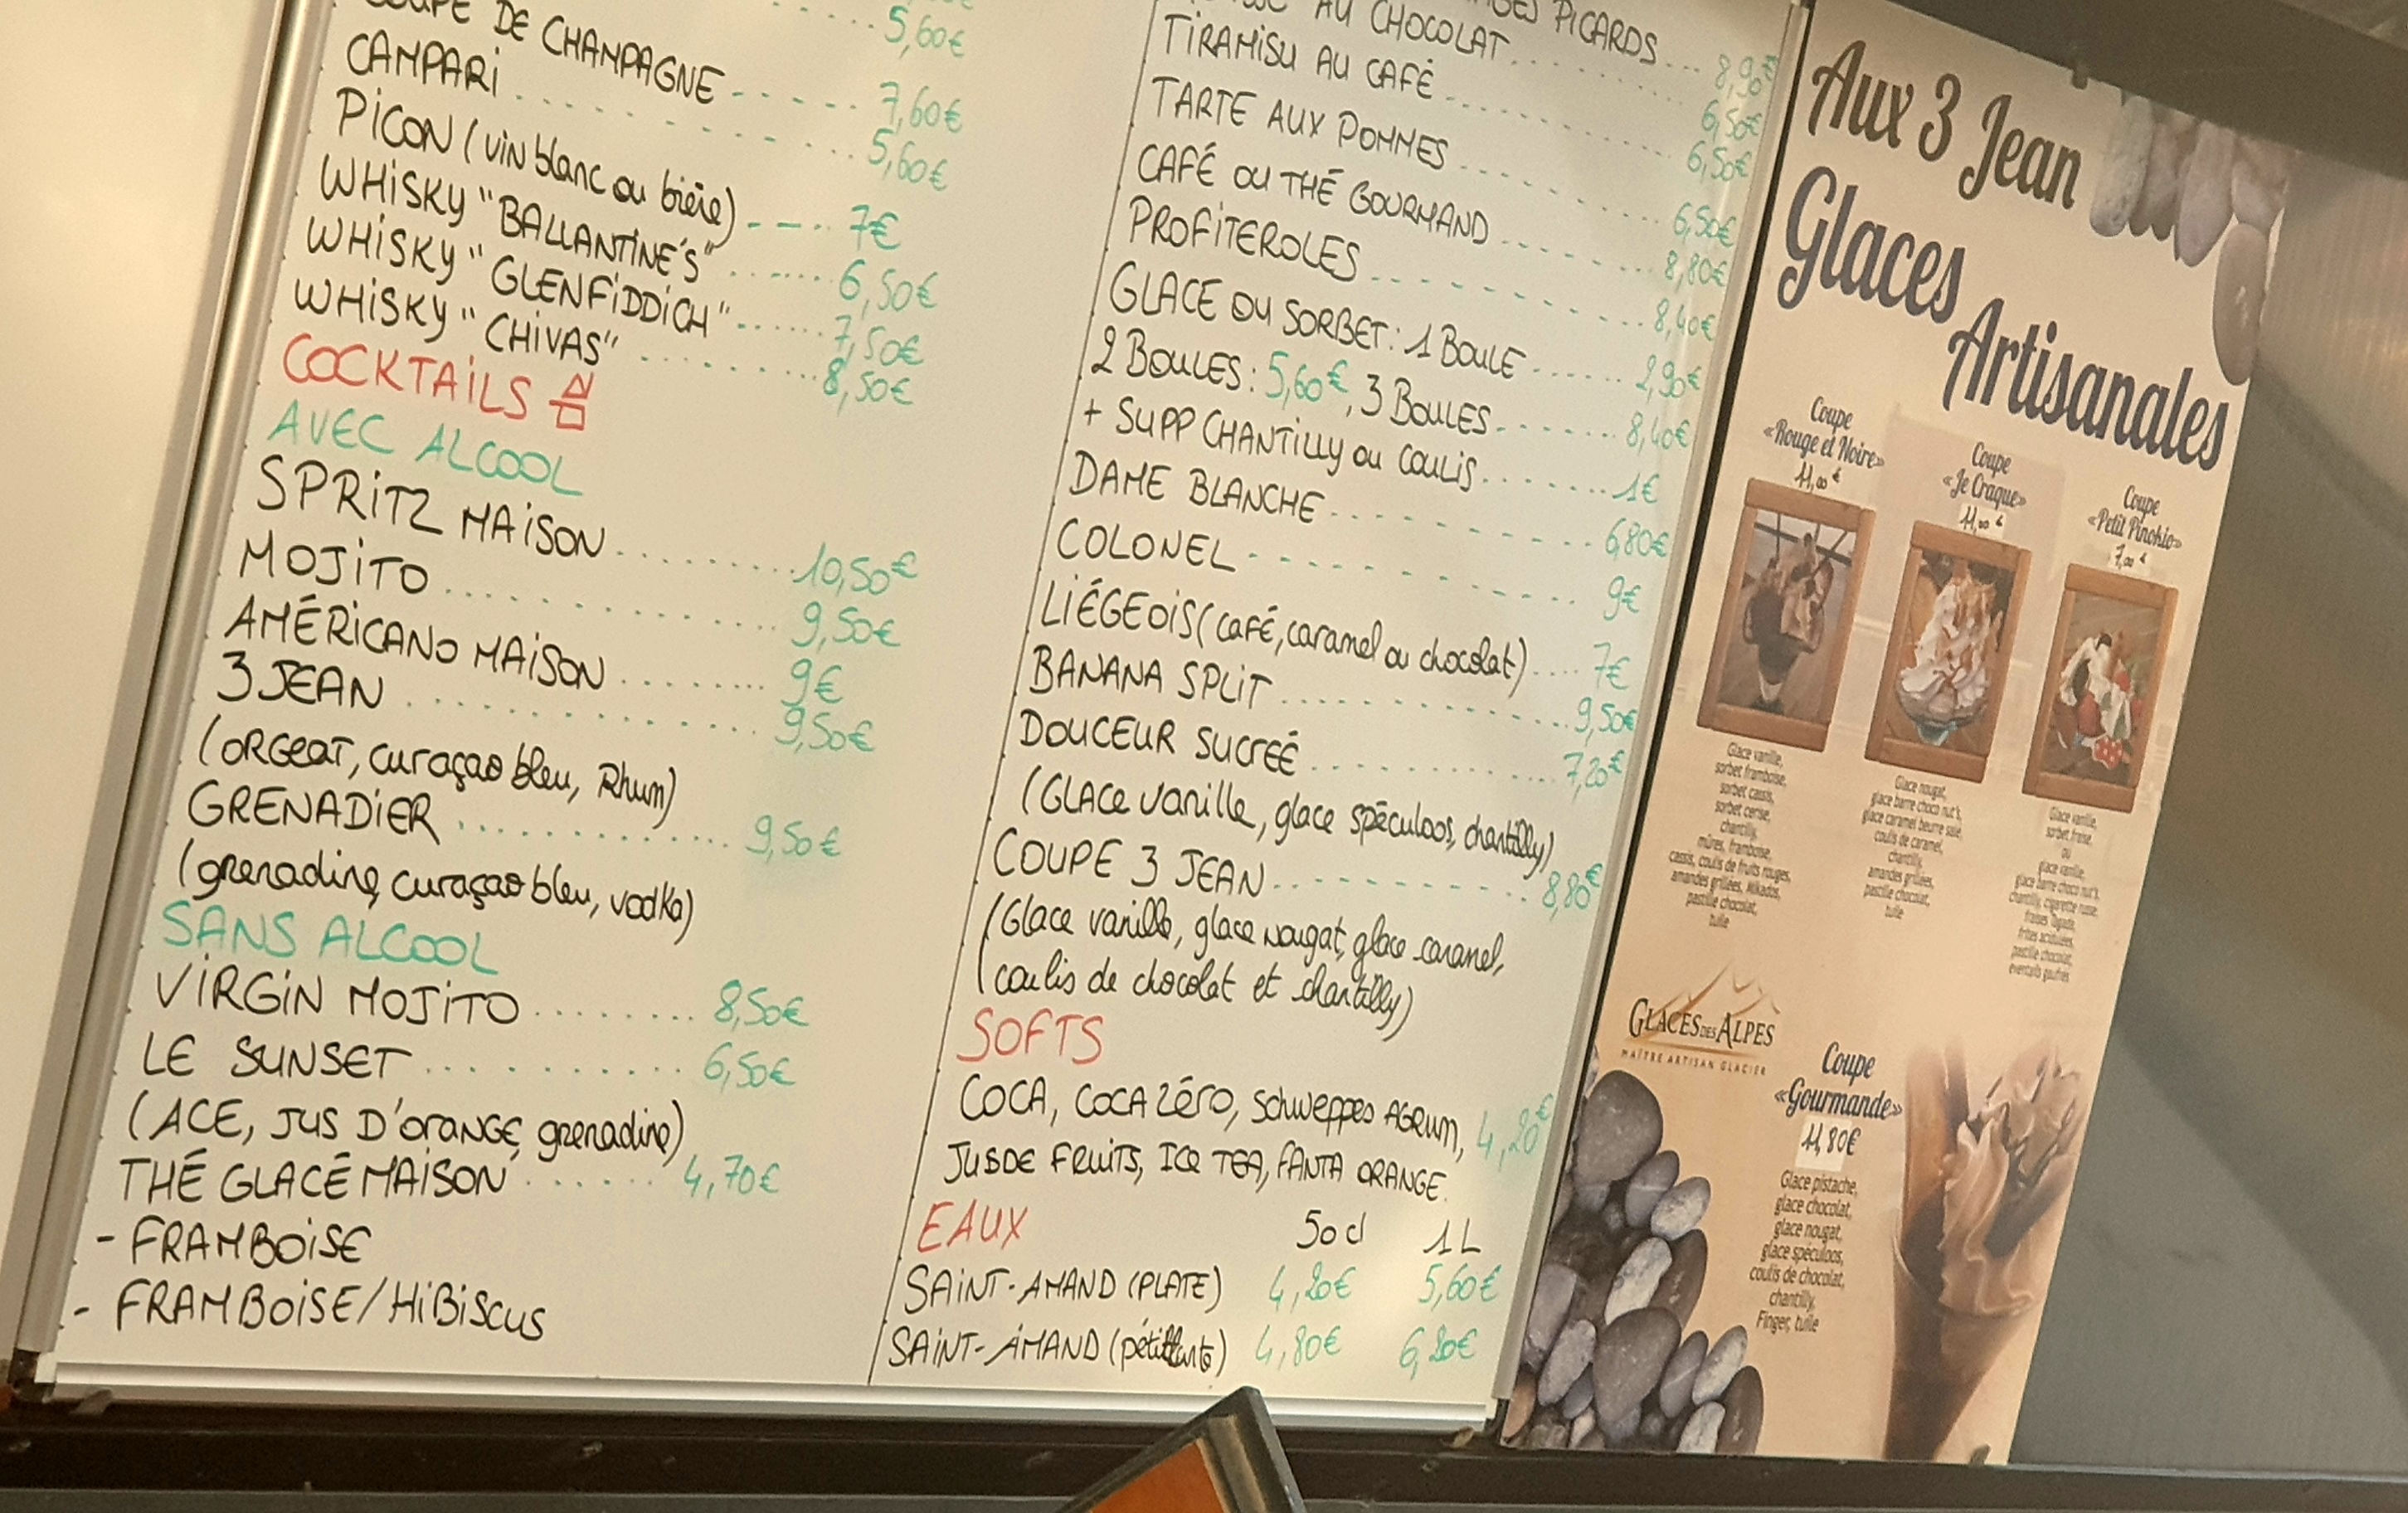 COUPE DE CHAMPAGNE ----- 7,60€
5,60€
CAMPARI ........ 5,60€
PICON (vin blanc ou bière) ---- 7€
WHISKY "BALLANTINE'S" ....... 6,50€
WHISKY "GLENFIDDICH" ...... 7,50€
WHISKY "CHIVAS" ........ 8,50€
COCKTAILS
AVEC ALCOOL
SPRITZ MAISON ......... 10,50€
MOJITO ............ 9,50€
AMÉRICANO MAISON ........ 9€
3 JEAN ............ 9,50€
(ORGEAT, curaçao bleu, Rhum)
GRENADIER ........... 9,50€
(grenadine, curaçao bleu, vodka)
SANS ALCOOL
VIRGIN MOJITO ........ 8,50€
LE SUNSET ........... 6,50€
(ACE, JUS D'ORANGE, grenadine)
THÉ GLACÉ MAISON ...... 4,70€
- FRAMBOISE
- FRAMBOISE/HIBISCUS
PICARDS ... 8,90€
AU CHOCOLAT ........ 6,50€
TIRAMISU AU CAFÉ ........ 6,50€
TARTE AUX POMMES ........ 6,50€
CAFÉ OU THÉ GOURMAND ........ 8,80€
PROFITEROLES ........... 8,40€
GLACE OU SORBET: 1 BOULE ...... 2,90€
2 BOULES: 5,60€, 3 BOULES ....... 8,40€
+ SUPP CHANTILLY ou COULIS ....... 1€
DAME BLANCHE ......... 6,80€
COLONEL ----------- 9€
LIÉGEOIS (CAFÉ, caramel ou chocolat) .... 7€
BANANA SPLIT ............ 9,50€
DOUCEUR SUCREÉ ........... 7,20€
(GLACE vanille, glace spéculoos, chantilly)
COUPE 3 JEAN ............ 8,80€
(Glace vanille, glace nougat, glace caramel,
coulis de chocolat et chantilly)
SOFTS
COCA, COCA ZÉRO, Schweppes AGRUM, 4,20€
JUS DE FRUITS, ICE TEA, FANTA ORANGE.
EAUX 50 cl 1 L
SAINT-AMAND (PLATE) 4,20€ 5,60€
SAINT-AMAND (pétillante) 4,80€ 6,20€
Aux 3 Jean
Glaces
Artisanales
Coupe
«Rouge et Noire»
11,00 €
Glace vanille,
sorbet framboise,
sorbet cassis,
sorbet cerise,
chantilly,
mûres, framboise,
cassis, coulis de fruits rouges,
amandes grillées, Mikados,
pastille chocolat,
tuile
Coupe
«Je Craque»
11,00 €
Glace nougat,
glace barre choco nut's,
glace caramel beurre salé,
coulis de caramel,
chantilly,
amandes grillées,
pastille chocolat,
tuile
Coupe
«Petit Pinokio»
7,00 €
Glace vanille,
sorbet fraise,
ou
glace vanille,
glace barre choco nut's,
chantilly, cigarette russe,
fraises Tagada,
frites acidulées,
pastille chocolat,
éventails gaufrés
GLACES DES ALPES
MAÎTRE ARTISAN GLACIER
Coupe
«Gourmande»
11,80€
Glace pistache,
glace chocolat,
glace nougat,
glace spéculoos,
coulis de chocolat,
chantilly,
Finger, tuile